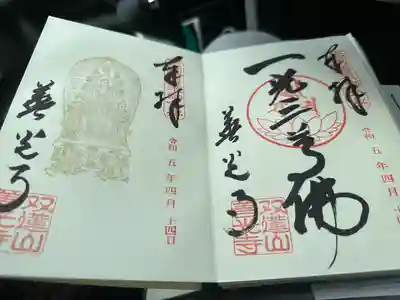 奉拝
一光三尊佛
善光寺
令和 五 年 四 月
双蓮山
善光寺
奉拝
善光寺
令和 五 年 四 月 十四日
双蓮山
善光寺